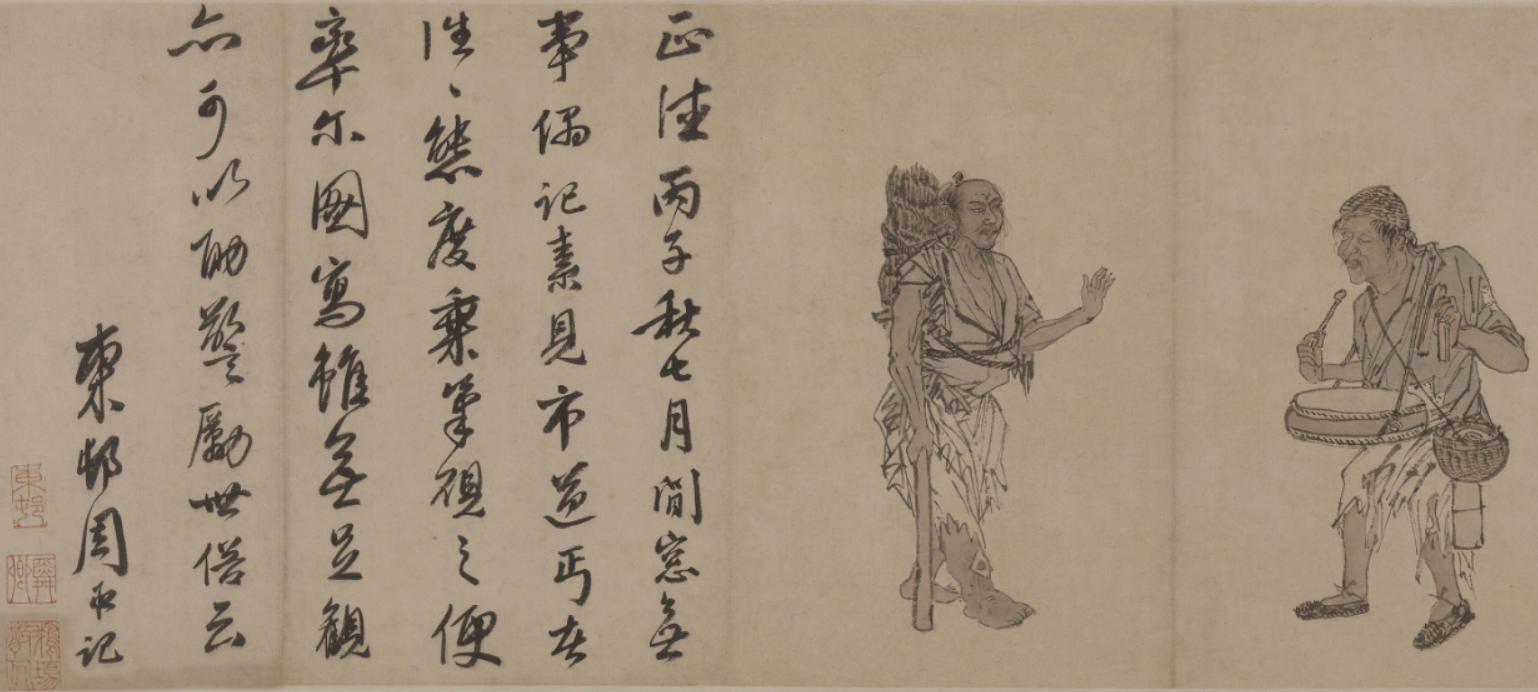 正德丙子秋七月閒窓無
事偶記素見市道丐者
往〻態度乘筆硯之便
率尔圖寫雖無足觀
亦可以助警勵世俗云
東邨周臣記
東邨
舜卿